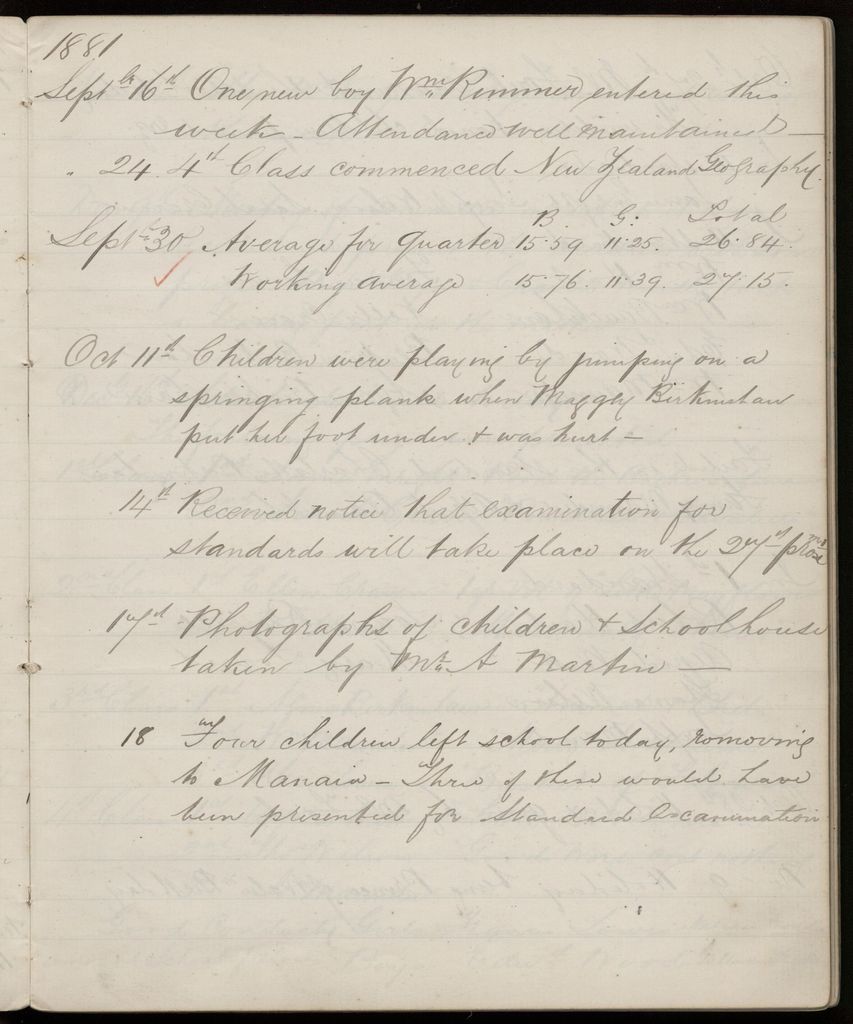 1881
Septbr 16th One new boy Wm Rimmer entered this
week - Attendance well maintained -
" 24. 4th Class commenced New Zealand Geography.
B. G: Total
Septr 30 Average for quarter 15.59 11.25. 26.84.
Working average 15.76. 11.39. 27.15.
Oct 11th Children were playing by jumping on a
springing plank when Maggy Birkinshaw
put her foot under & was hurt -
14th Received notice that examination for
standards will take place on the 27th proxmo
17th Photographs of children & Schoolhouse
taken by Mr A Martin -
18 Four children left school today, removing
to Manaia - Three of these would have
been presented for Standard Examination